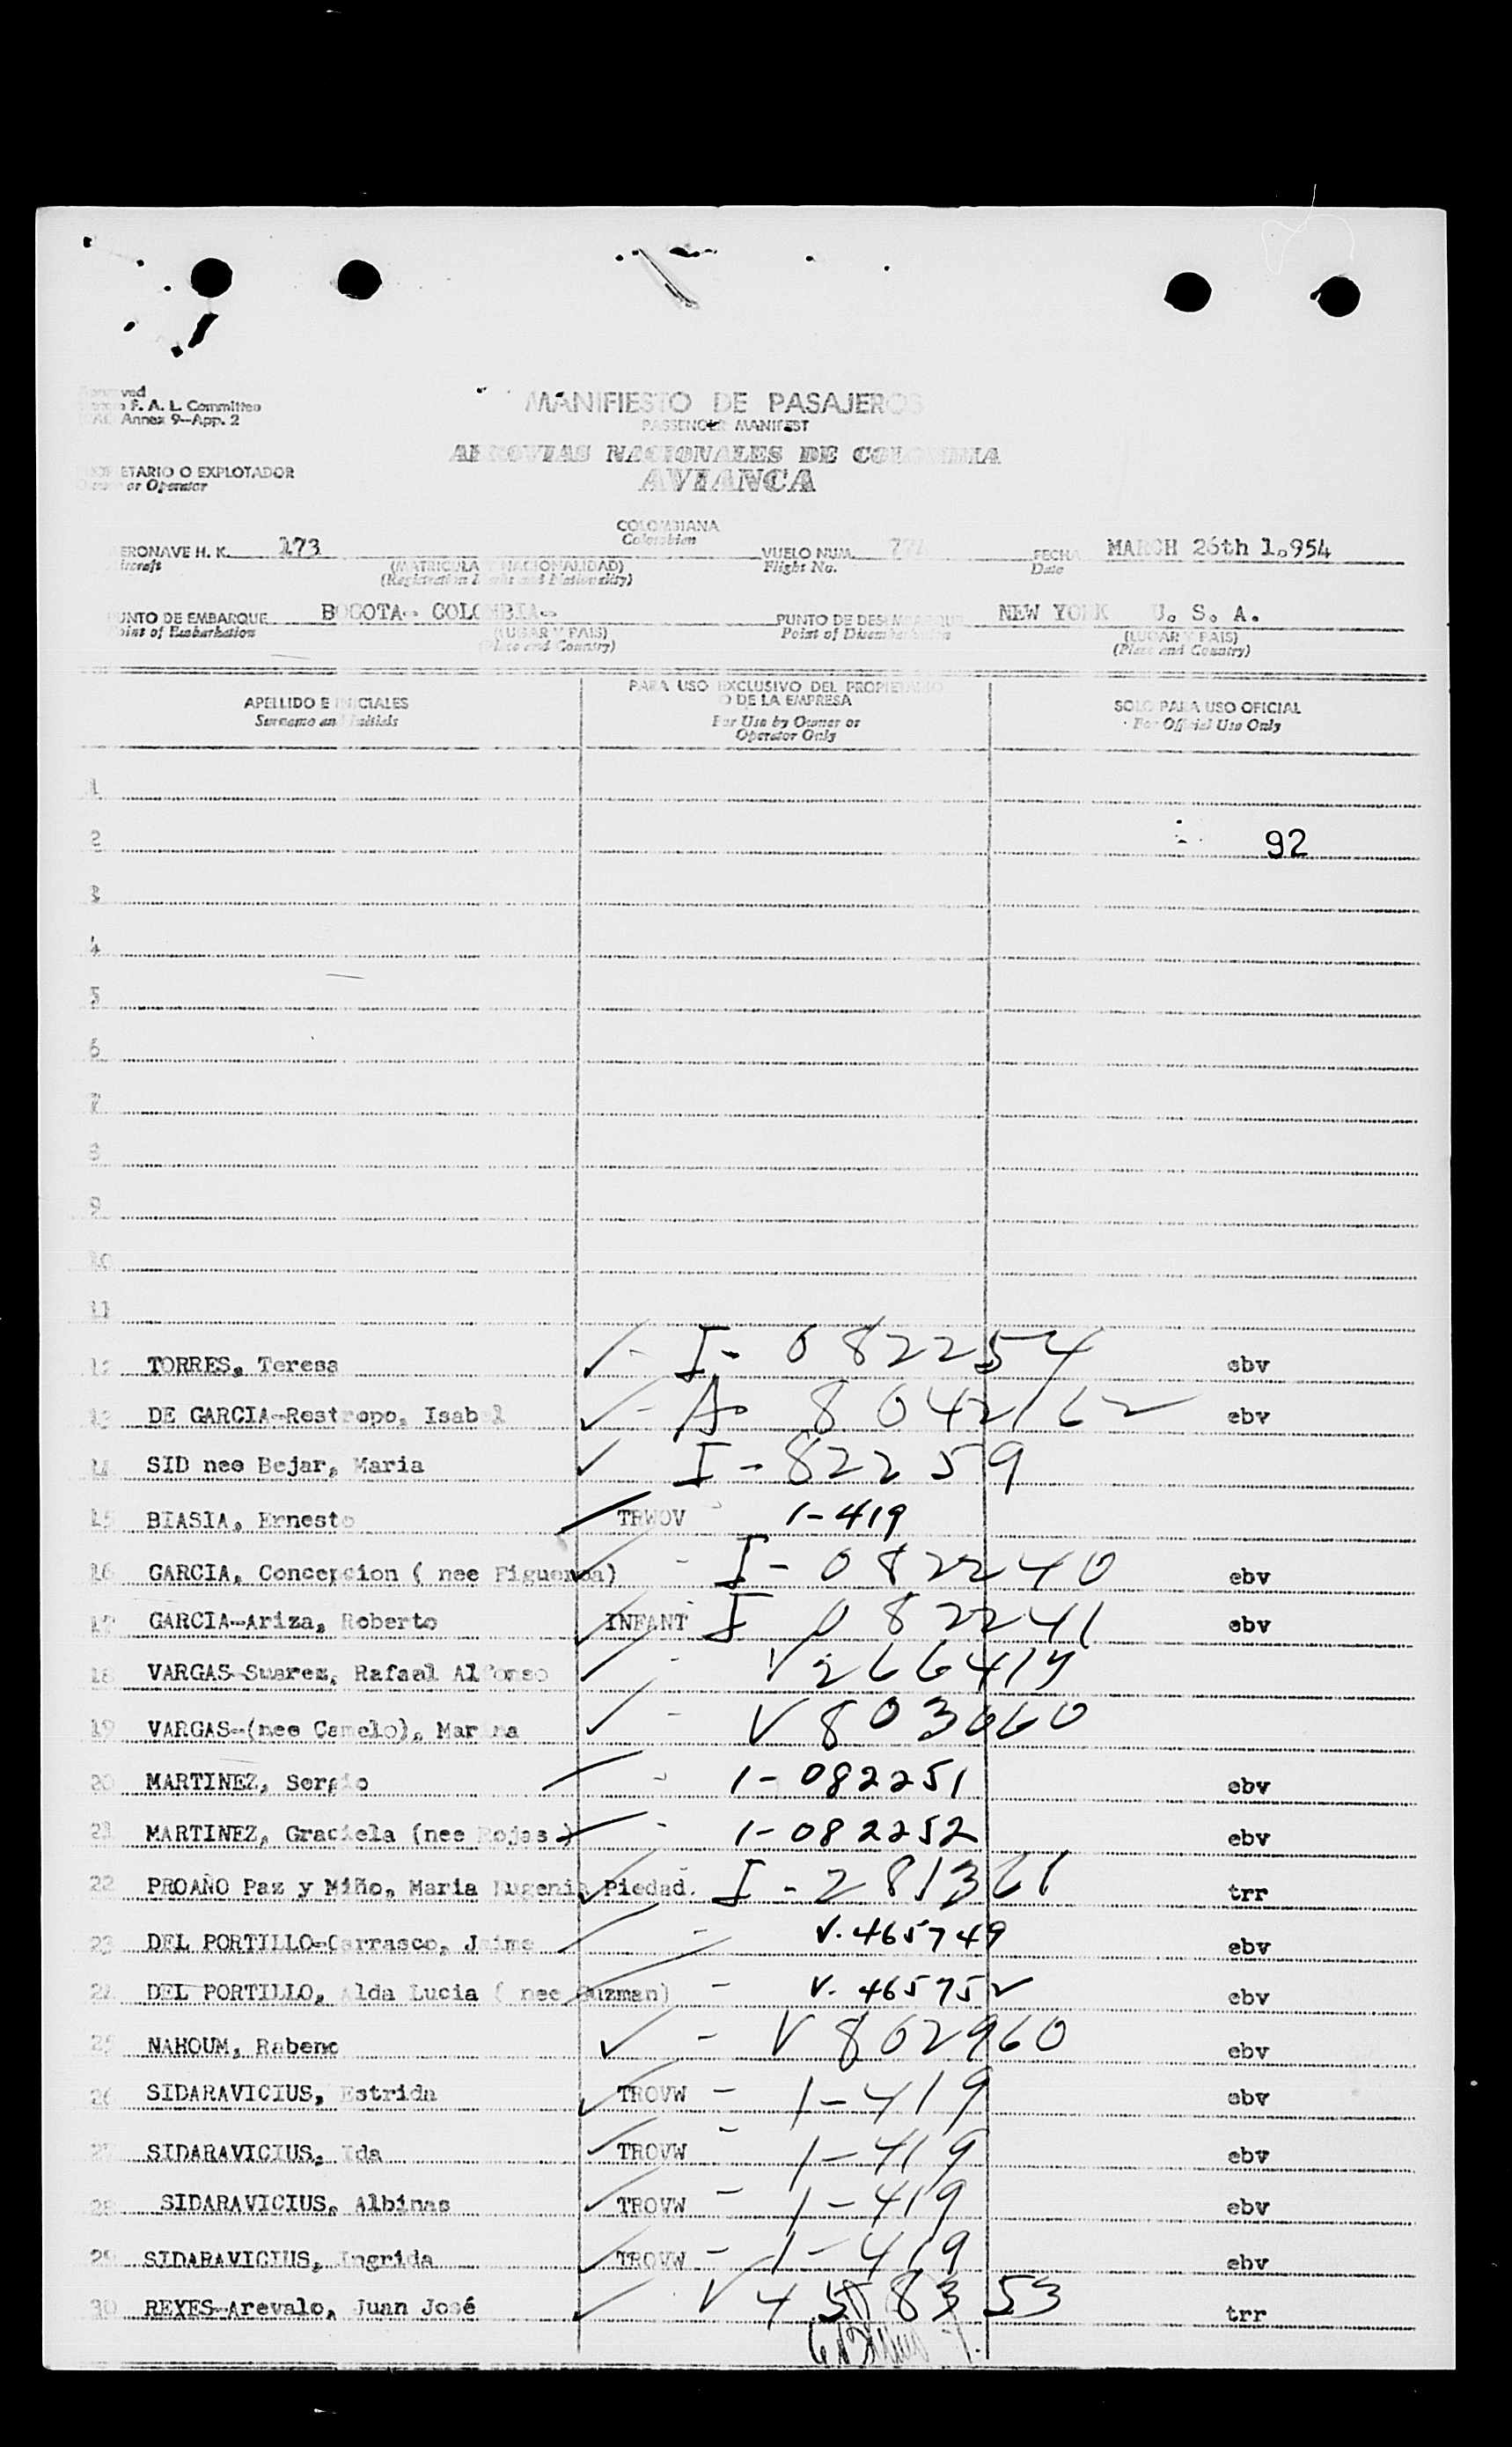 F. A. L. Committee
Annex 9-App. 2
MANIFIESTO DE PASAJEROS
PASSENGER MANIFEST
AEROVIAS NACIONALES DE COLOMBIA
AVIANCA
ETARIO O EXPLOTADOR
or Operator
COLOMBIANA
Colombian
ERONAVE H. K. 173
ircraft
(MATRICULA Y NACIONALIDAD)
(Registration Marks and Nationality)
VUELO NUM.
Flight No.
FECHA MARCH 26th 1.954
Date
UNTO DE EMBARQUE BOGOTA- COLOMBIA-
oint of Embarkation
(LUGAR Y PAIS)
(Place and Country)
PUNTO DE DESEMBARQUE NEW YORK U. S. A.
Point of Disembarkation
(LUGAR Y PAIS)
(Place and Country)
APELLIDO E INICIALES
Surname and Initials
PARA USO EXCLUSIVO DEL PROPIETARIO
O DE LA EMPRESA
For Use by Owner or
Operator Only
SOLO PARA USO OFICIAL
For Official Use Only
1
2 92
3
4
5
6
7
8
9
10
11
12 TORRES, Teresa I- 082254 ebv
13 DE GARCIA-Restrepo, Isabel A- 8042162 ebv
14 SID nee Bejar, Maria I-82259
15 BIASIA, Ernesto TRWOV 1-419
16 GARCIA, Concepcion ( nee Figueroa) - I-082240 ebv
17 GARCIA-Ariza, Roberto INFANT I 082241 ebv
18 VARGAS-Suarez, Rafael Alfonso -
19 VARGAS-(nee Camelo), Marina - V803060
20 MARTINEZ, Sergio - 1-082251 ebv
21 MARTINEZ, Graciela (nee Rojas) - 1-082252 ebv
22 PROAÑO Paz y Miño, Maria Eugenia Piedad. I-281361 trr
23 DEL PORTILLO-Carrasco, Jaime - V.465749 ebv
24 DEL PORTILLO, Alda Lucia ( nee Guzman) - V. 465752 ebv
25 NAHOUM, Rabeno - V802960 ebv
26 SIDARAVICIUS, Estrida TROVW - 1-419 ebv
27 SIDARAVICIUS, Ida TROVW - 1-419 ebv
28 SIDARAVICIUS, Albinas TROVW - 1-419 ebv
29 SIDARAVICIUS, Ingrida TROVW - 1-419 ebv
30 REYES-Arevalo, Juan José trr